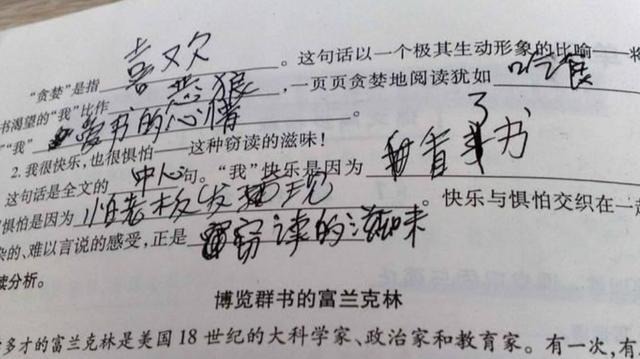 “贪婪”是指 喜欢 。这句话以一个极其生动形象的比喻——将
书渴望的“我”比作 恶狼 ,一页页贪婪地阅读犹如 吃食
“我” 爱书的心情 。
2. 我很快乐,也很惧怕——这种窃读的滋味!
这句话是全文的 中心 句。“我”快乐是因为 看了书
惧怕是因为 怕老板发现 。快乐与惧怕交织在一起
杂的、难以言说的感受,正是 窃读的滋味
读分析。
博览群书的富兰克林
多才的富兰克林是美国 18 世纪的大科学家、政治家和教育家。有一次,有